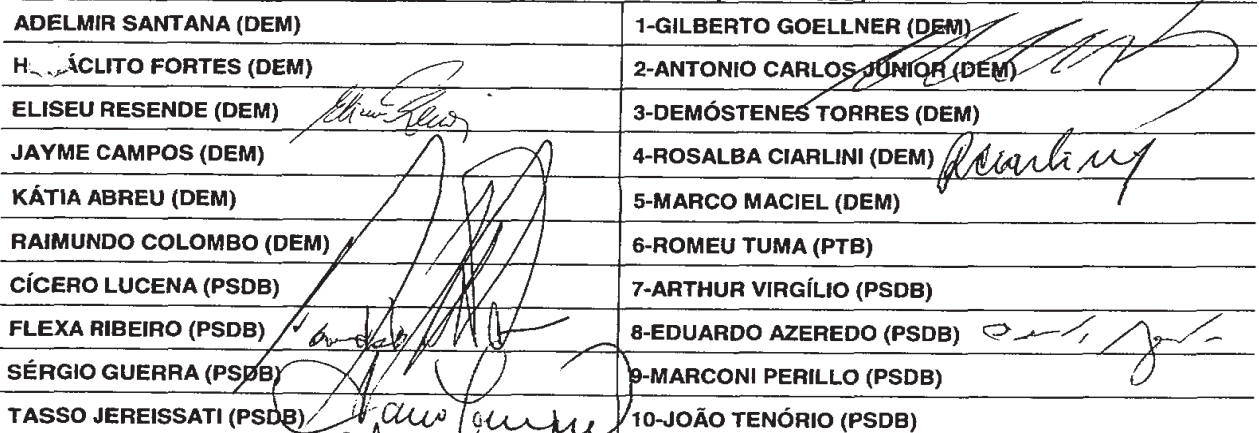 ADELMIR SANTANA (DEM) 1-GILBERTO GOELLNER (DEM)
H ÁCLITO FORTES (DEM) 2-ANTONIO CARLOS JÚNIOR (DEM)
ELISEU RESENDE (DEM) 3-DEMÓSTENES TORRES (DEM)
JAYME CAMPOS (DEM) 4-ROSALBA CIARLINI (DEM) Rciarliny
KÁTIA ABREU (DEM) 5-MARCO MACIEL (DEM)
RAIMUNDO COLOMBO (DEM) 6-ROMEU TUMA (PTB)
CÍCERO LUCENA (PSDB) 7-ARTHUR VIRGÍLIO (PSDB)
FLEXA RIBEIRO (PSDB) 8-EDUARDO AZEREDO (PSDB)
SÉRGIO GUERRA (PSDB) 9-MARCONI PERILLO (PSDB)
TASSO JEREISSATI (PSDB) 10-JOÃO TENÓRIO (PSDB)